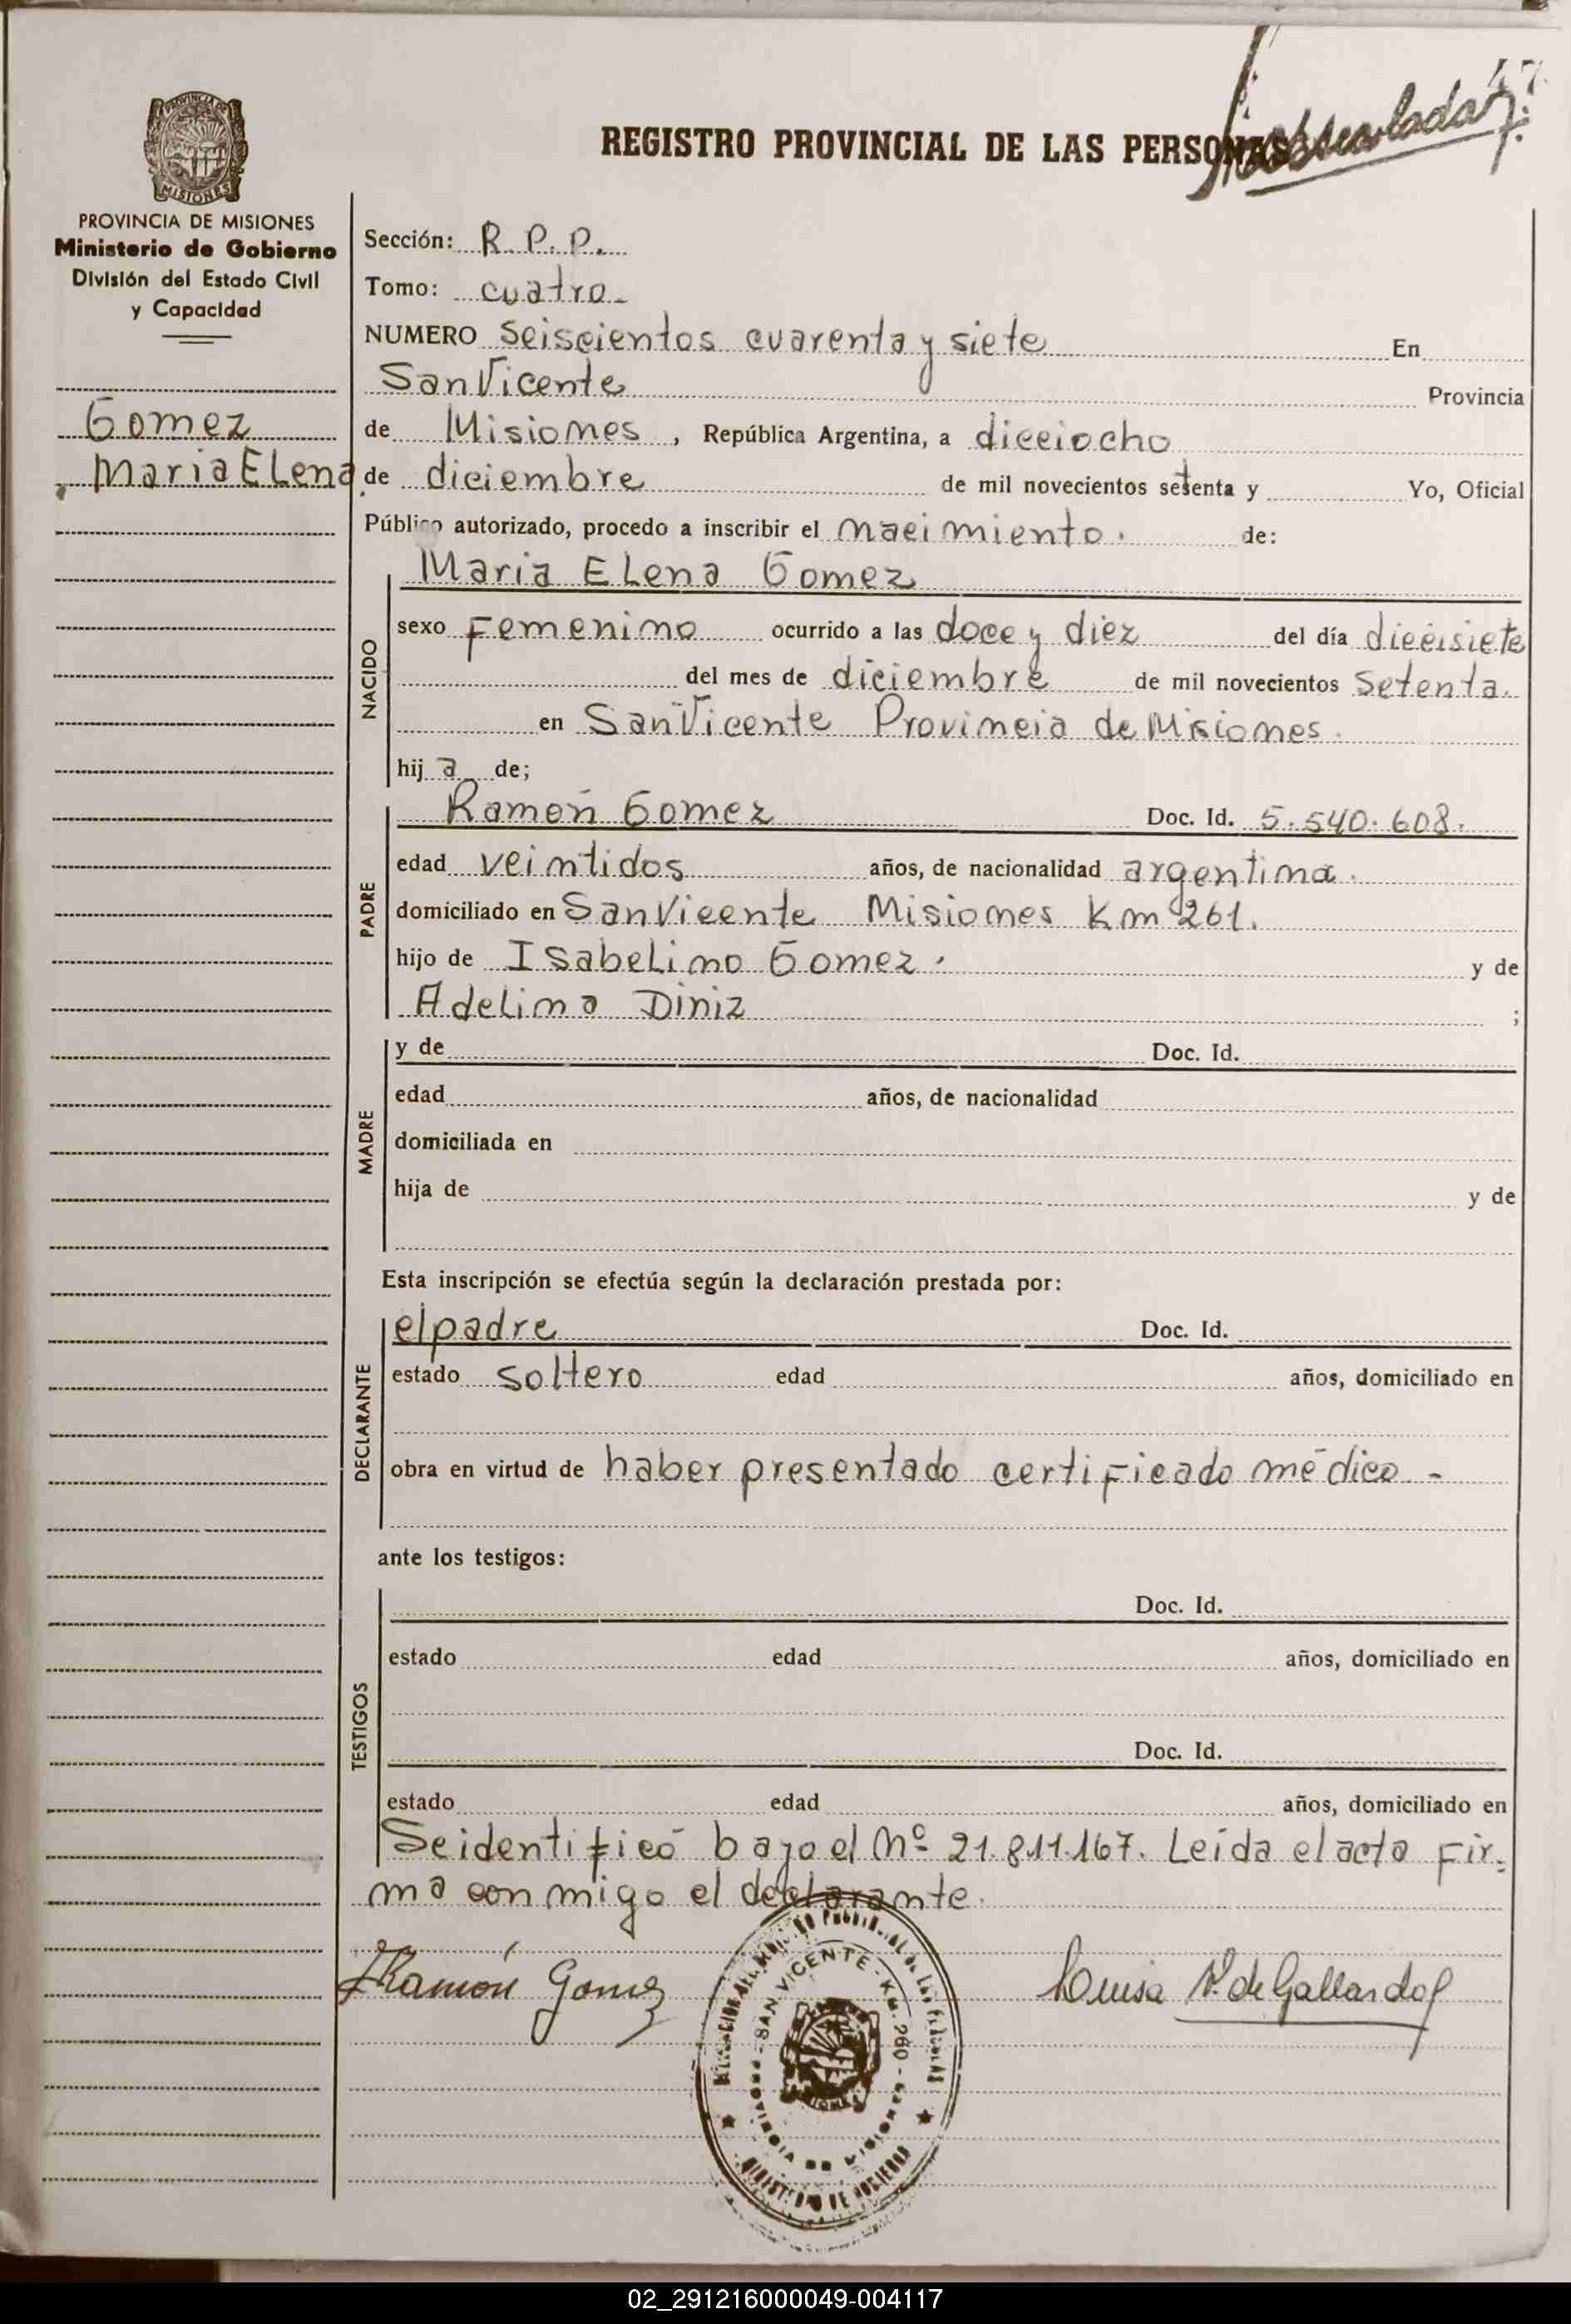 47
REGISTRO PROVINCIAL DE LAS PERSONAS
PROVINCIA DE
MISIONES
PROVINCIA DE MISIONES
Ministerio de Gobierno
División del Estado Civil
y Capacidad
Gomez
Maria ELena
Sección: R. P. P.
Tomo: cuatro
NUMERO Seiscientos cuarenta y siete En
San Vicente Provincia
de Misiones, República Argentina, a dieciocho
de diciembre de mil novecientos setenta y Yo, Oficial
Público autorizado, procedo a inscribir el nacimiento. de:
NACIDO
Maria ELena Gomez
sexo Femenino ocurrido a las doce y diez del día diecisiete
del mes de diciembre de mil novecientos Setenta.
en San Vicente Provincia de Misiones.
hija de;
PADRE
Ramón Gomez Doc. Id. 5.540.608.
edad veintidos años, de nacionalidad argentina.
domiciliado en San Vicente Misiones Km 261.
hijo de Isabelino Gomez. y de
Adelina Diniz ;
MADRE
y de Doc. Id.
edad años, de nacionalidad
domiciliada en
hija de y de
Esta inscripción se efectúa según la declaración prestada por:
DECLARANTE
el padre Doc. Id.
estado soltero edad años, domiciliado en
obra en virtud de haber presentado certificado médico -
ante los testigos:
TESTIGOS
Doc. Id.
estado edad años, domiciliado en
Doc. Id.
estado edad años, domiciliado en
Se identificó bajo el Nº 21.811.167. Leída el acta fir-
ma conmigo el declarante.
Ramón Gomez
Luisa V. de Gallardo
SAN VICENTE - KM. 260 -
PROVINCIA DE MISIONES
MINISTERIO DE GOBIERNO
02_291216000049-004117